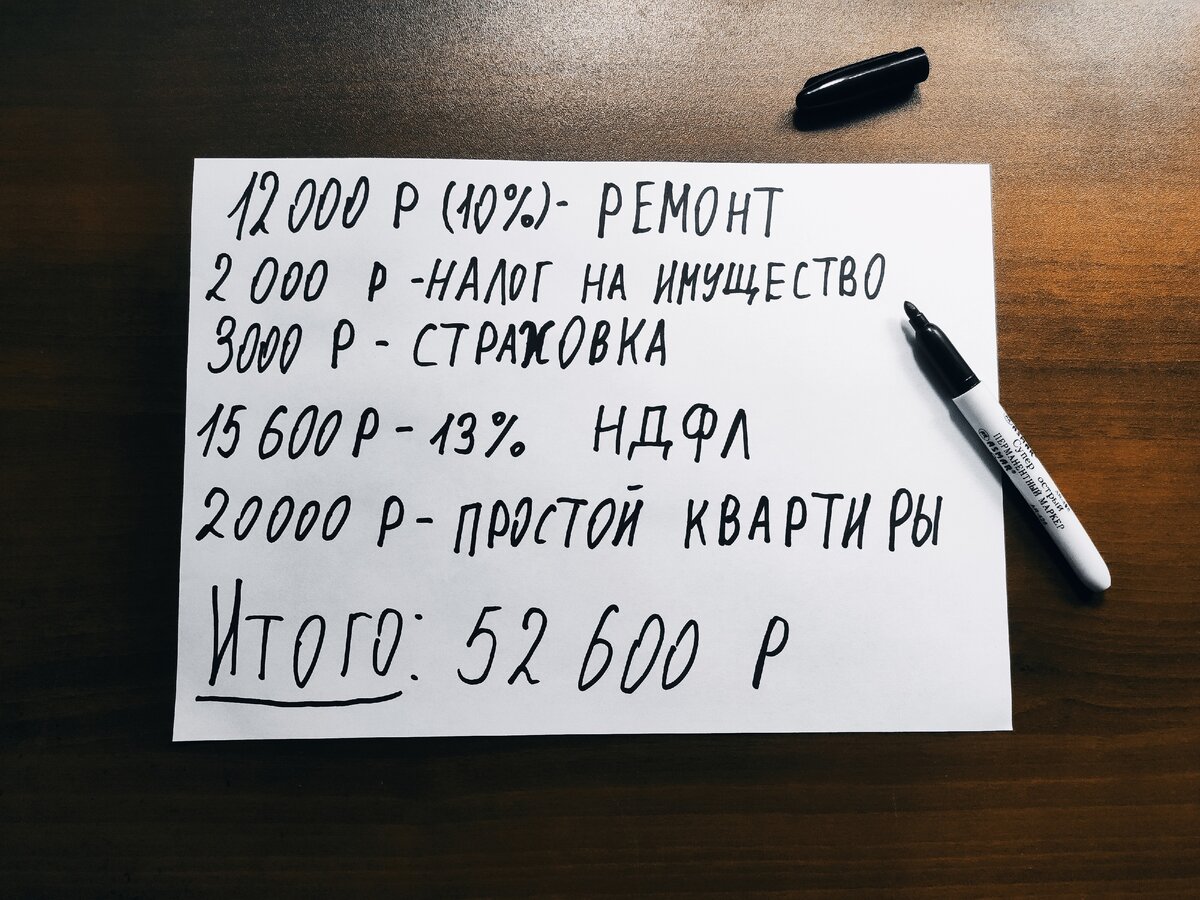 12 000 Р (10%)- РЕМОНТ
2 000 Р -НАЛОГ НА ИМУЩЕСТВО
3000 Р - СТРАХОВКА
15 600 Р - 13% НДФЛ
20000 Р - ПРОСТОЙ КВАРТИРЫ
Итого: 52 600 Р
Супер острый
ПЕРМАНЕНТНЫЙ МАРКЕР